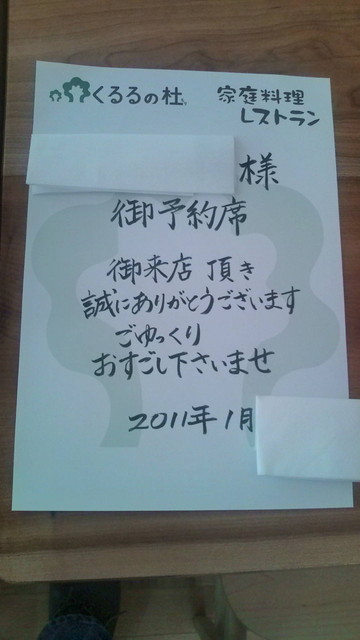 くるるの杜
家庭料理
レストラン
様
御予約席
御来店 頂き
誠にありがとうございます
ごゆっくり
おすごし下さいませ
2011年1月